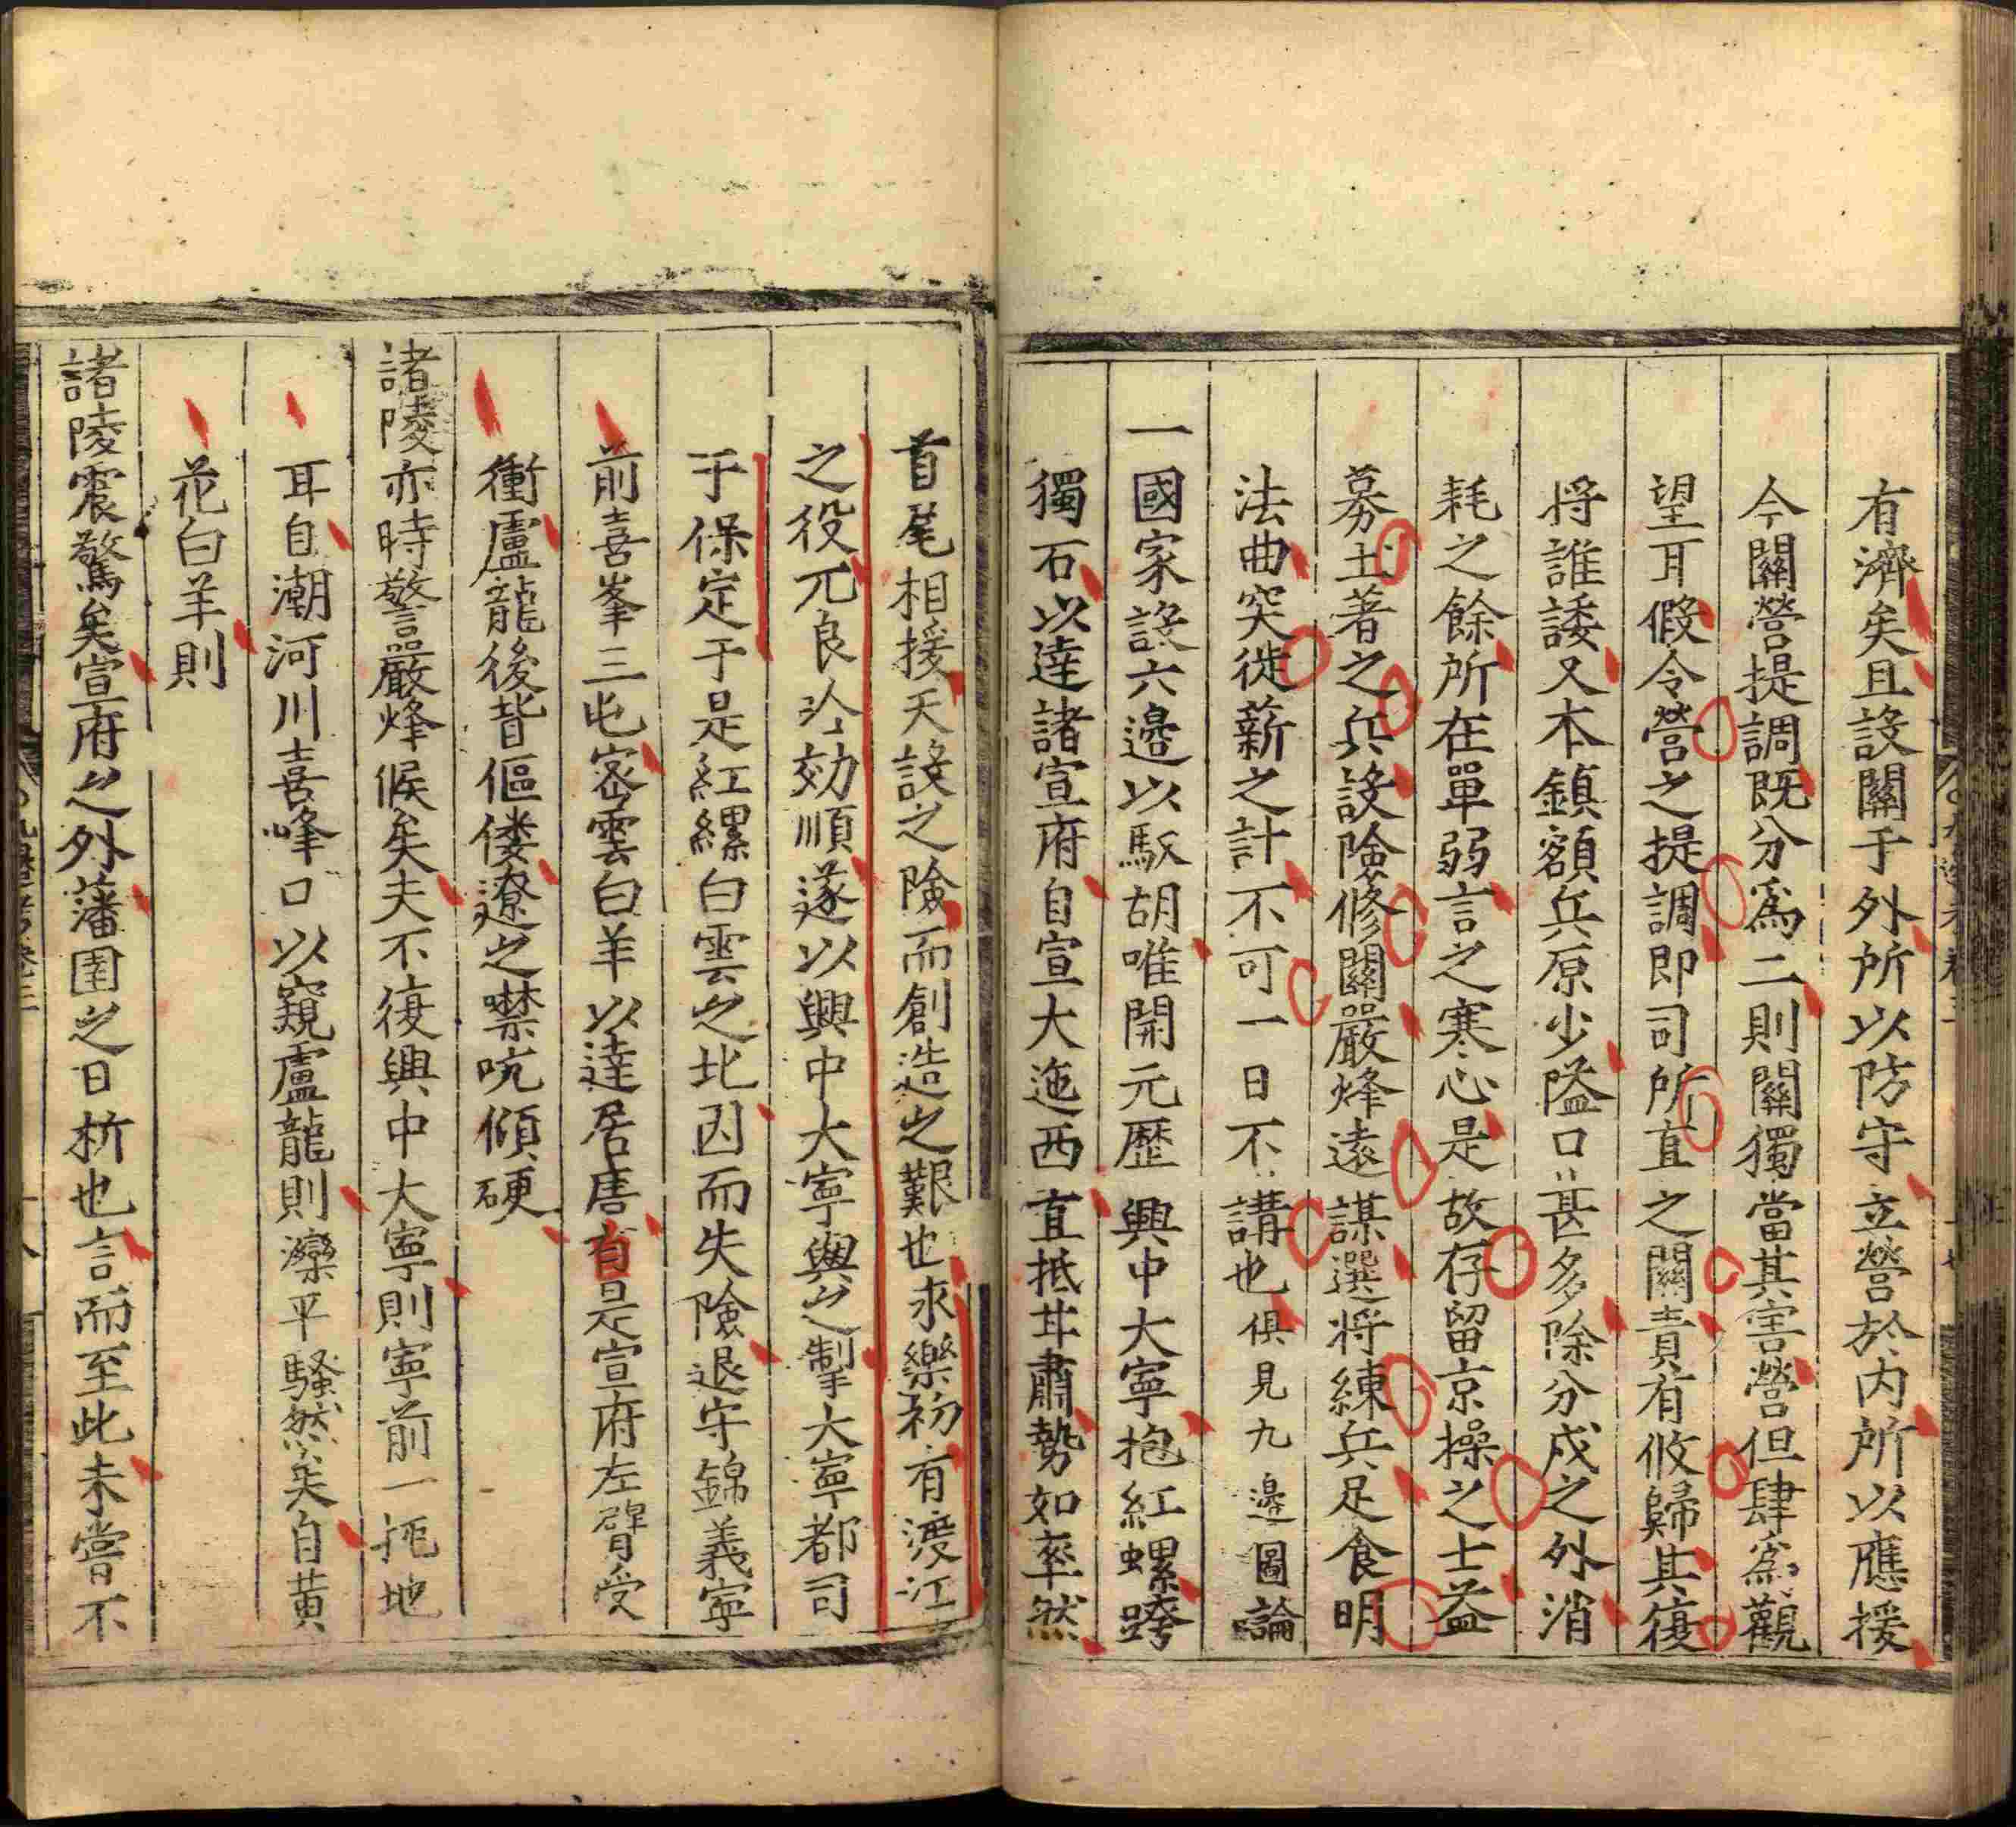 有濟矣且設關于外所以防守立營於内所以應援
今關營提調既分爲二則關獨當其害營但肆爲觀
望耳假令營之提調即司所直之關責有攸歸其復
將誰諉又本鎮額兵原少隘口甚多除分戍之外消
耗之餘所在單弱言之寒心是故存留京操之士益
募土著之兵設險修關嚴烽遠謀選將練兵足食明
法曲突徙薪之計不可一日不講也俱見九邊圖論
一國家設六邊以馭胡唯開元歷興中大寧抱紅螺跨
獨石以達諸宣府自宣大迤西直抵甘肅勢如率然
首尾相援天設之險而創造之艱也永樂初有渡江
之役兀良㕥効順遂以興中大寧與之掣大寧都司
于保定于是紅縲白雲之北因而失險退守錦義寧
前喜峯三屯宻雲白羊以達居庸有是宣府左臂受
衝盧龍後背傴僂遼之噤吭傾硬
諸陵亦時警嚴烽候矣夫不復興中大寧則寧前一扼地
耳自潮河川喜峰口以窺盧龍則灤平騷然矣自黄
花白羊則
諸陵震驚矣宣府之外藩圉之日析也言而至此未嘗不